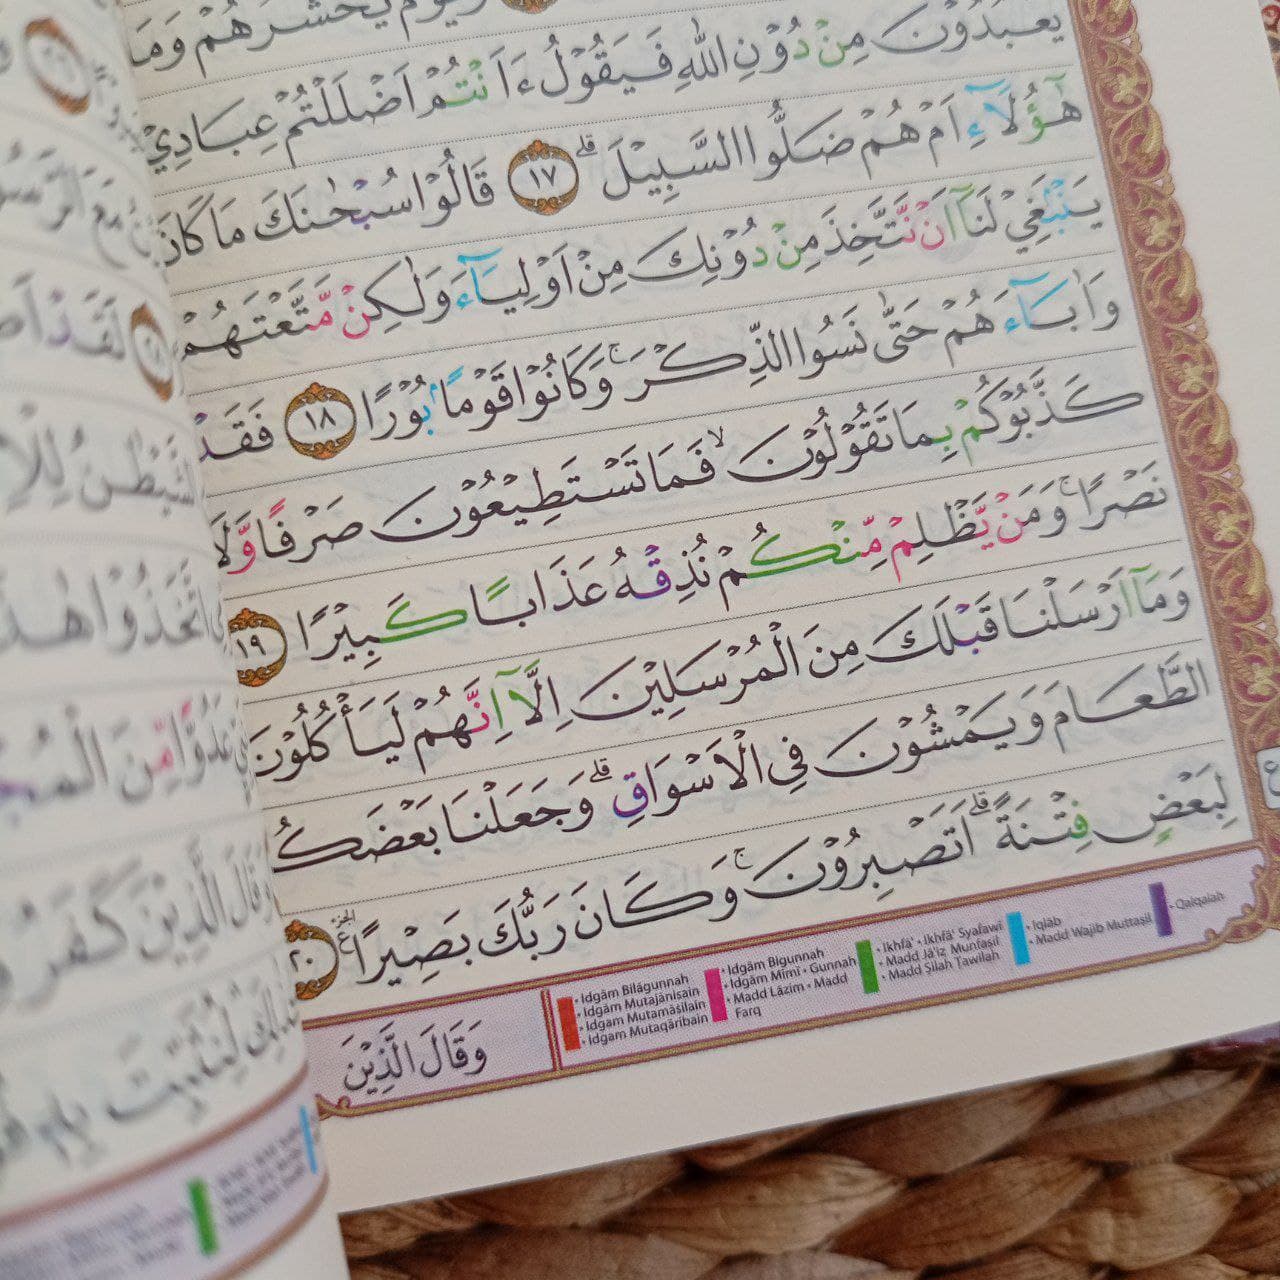 يَحْشُرُهُمْ وَمَا
يَعْبُدُوْنَ مِنْ دُوْنِ اللّٰهِ فَيَقُوْلُ ءَاَنْتُمْ اَضْلَلْتُمْ عِبَادِيْ
هٰٓؤُلَاۤءِ اَمْ هُمْ ضَلُّوا السَّبِيْلَ ۗ ١٧ قَالُوْا سُبْحٰنَكَ مَا كَانَ
يَنْۢبَغِيْ لَنَآ اَنْ نَّتَّخِذَ مِنْ دُوْنِكَ مِنْ اَوْلِيَاۤءَ وَلٰكِنْ مَّتَّعْتَهُمْ
وَاٰبَاۤءَهُمْ حَتّٰى نَسُوا الذِّكْرَ ۚ وَكَانُوْا قَوْمًاۢ بُوْرًا ١٨ فَقَدْ
كَذَّبُوْكُمْ بِمَا تَقُوْلُوْنَ ۙ فَمَا تَسْتَطِيْعُوْنَ صَرْفًا وَّلَا
نَصْرًا ۚ وَمَنْ يَّظْلِمْ مِّنْكُمْ نُذِقْهُ عَذَابًا كَبِيْرًا ١٩
وَمَآ اَرْسَلْنَا قَبْلَكَ مِنَ الْمُرْسَلِيْنَ اِلَّآ اِنَّهُمْ لَيَأْكُلُوْنَ
الطَّعَامَ وَيَمْشُوْنَ فِى الْاَسْوَاقِ ۗ وَجَعَلْنَا بَعْضَكُ
لِبَعْضٍ فِتْنَةً ۗ اَتَصْبِرُوْنَ ۚ وَكَانَ رَبُّكَ بَصِيْرًا ࣖ الجزء ٢٠
وَقَالَ الَّذِيْنَ
• Idgām Bilāgunnah
• Idgām Mutajānisain
• Idgam Mutamāṡilain
• Idgam Mutaqāribain
• Idgām Bigunnah
• Idgām Mīmī • Gunnah
• Madd Lāzim • Madd
Farq
• Ikhfā' • Ikhfā' Syafawī
• Madd Jā'iz Munfaṣil
• Madd Ṣilah Ṭawīlah
• Iqlāb
• Madd Wajib Muttaṣil
• Qalqalah
مَعَ الرَّسُوْ
لَقَدْ اَضَ
لشَّيْطٰنُ لِلْاِ
اتَّخَذُوْا هٰذَ
عَدُوًّا مِّنَ الْمُجْ
وَقَالَ الَّذِيْنَ كَفَرُوْ
لِنُثَبِّتَ بِهٖ